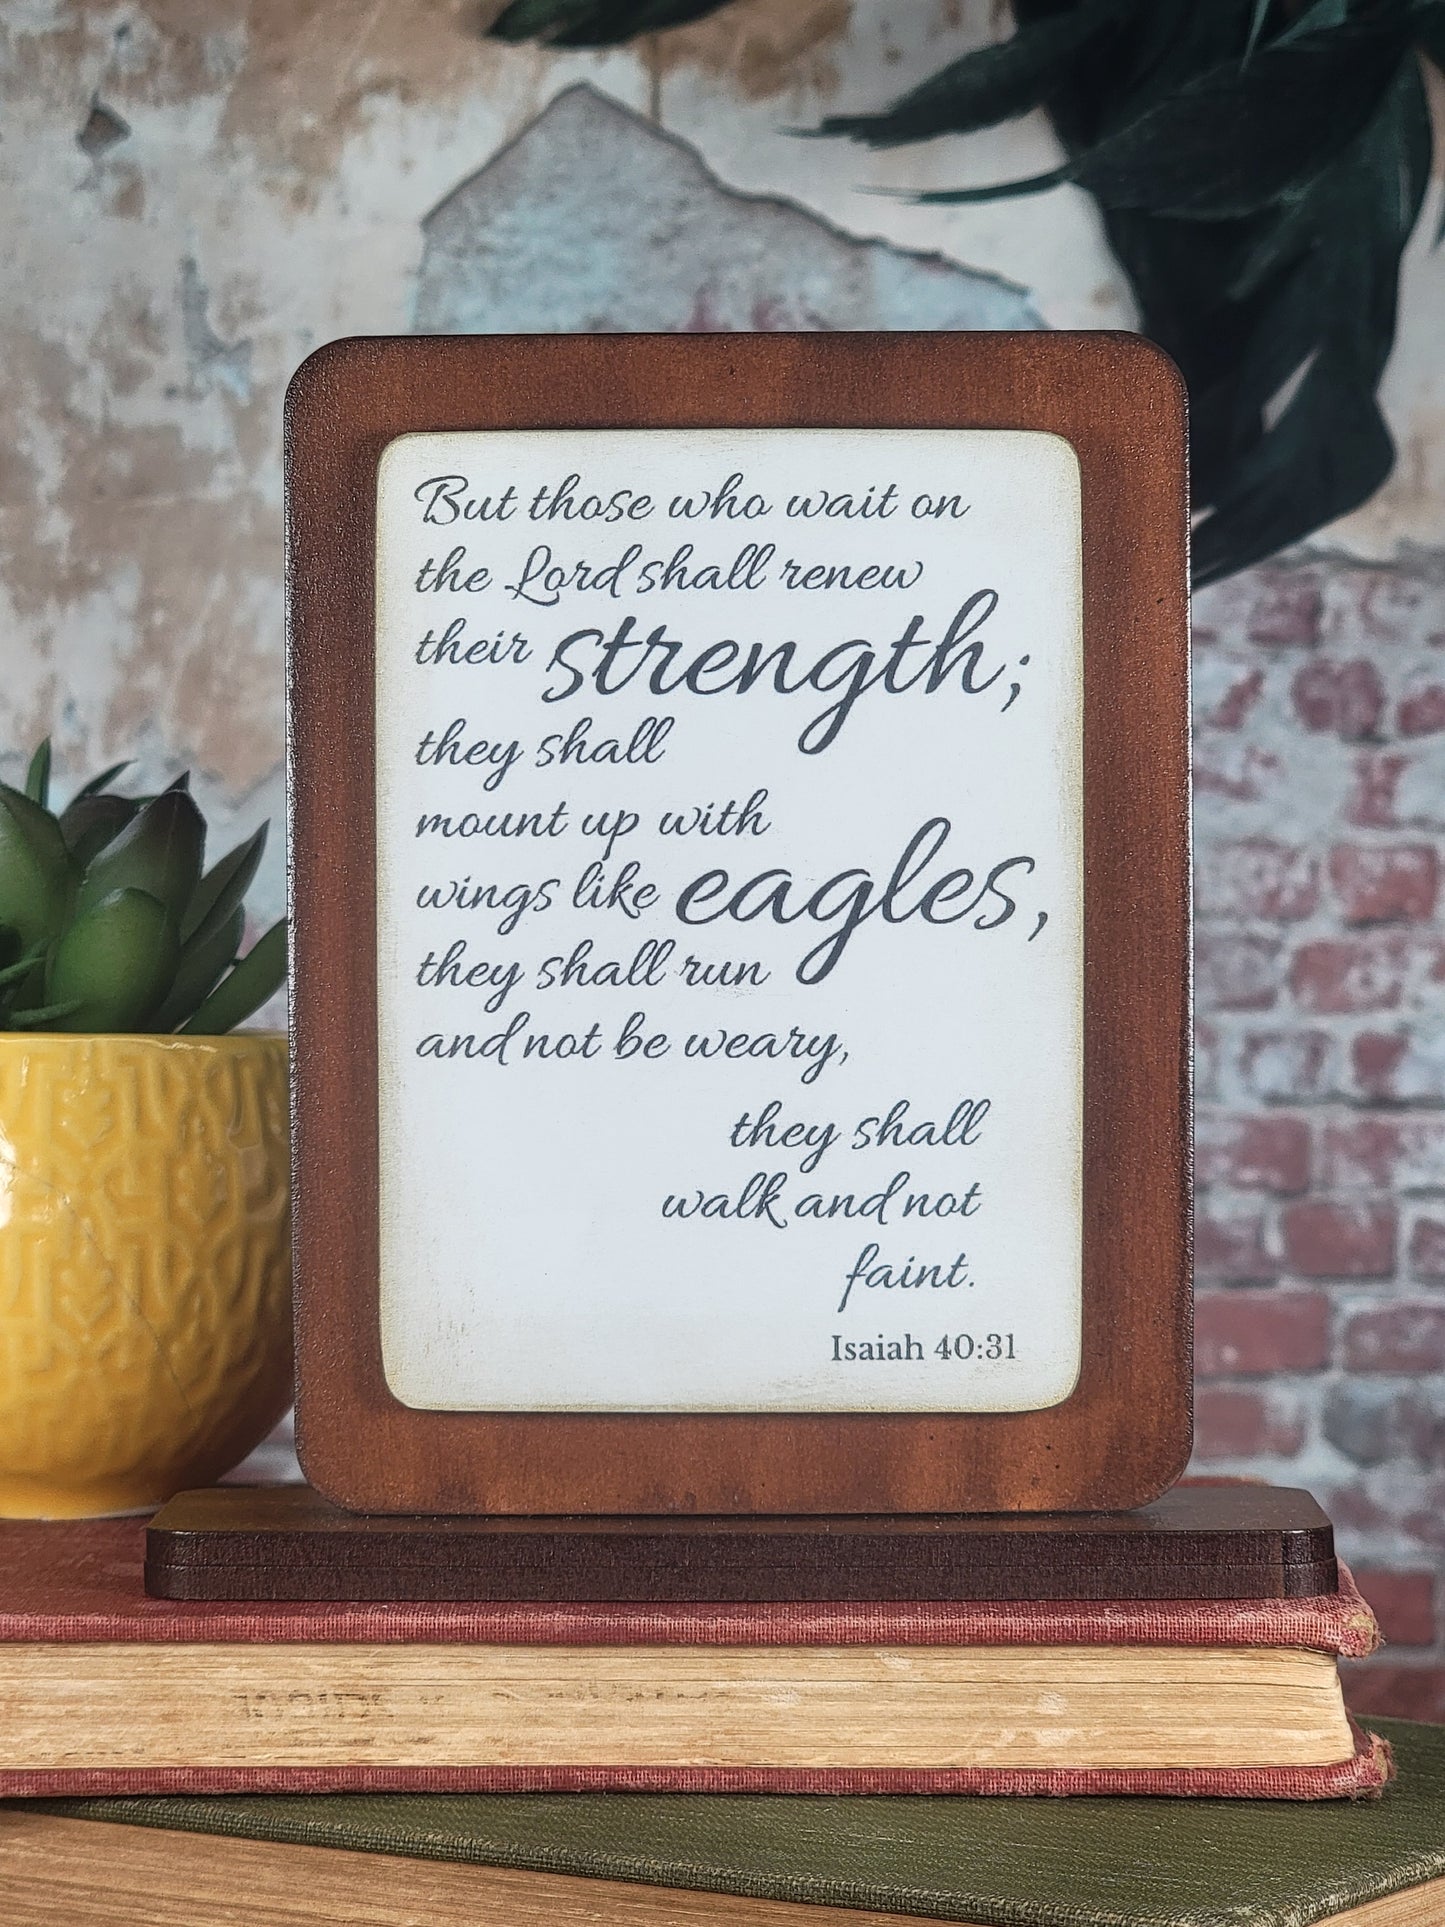 But those who wait on
the Lord shall renew
their strength;
they shall
mount up with
wings like eagles,
they shall run
and not be weary,
they shall
walk and not
faint.
Isaiah 40:31